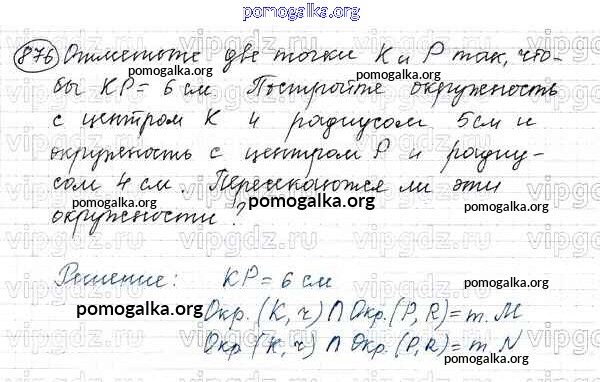 pomogalka.org
876 Отметьте две точки K и P так, что-
pomogalka.org pomogalka.org
бы KP = 6 см. Постройте окружность
с центром K и радиусом 5 см и
pomogalka.org pomogalka.org
окружность с центром P и радиу-
сом 4 см. Пересекаются ли эти
pomogalka.org pomogalka.org
окружности?
Решение: KP = 6 см
pomogalka.org pomogalka.org
Окр. (K, r) ∩ Окр. (P, R) = т. M
Окр (K, r) ∩ Окр. (P, R) = т. N
pomogalka.org pomogalka.org